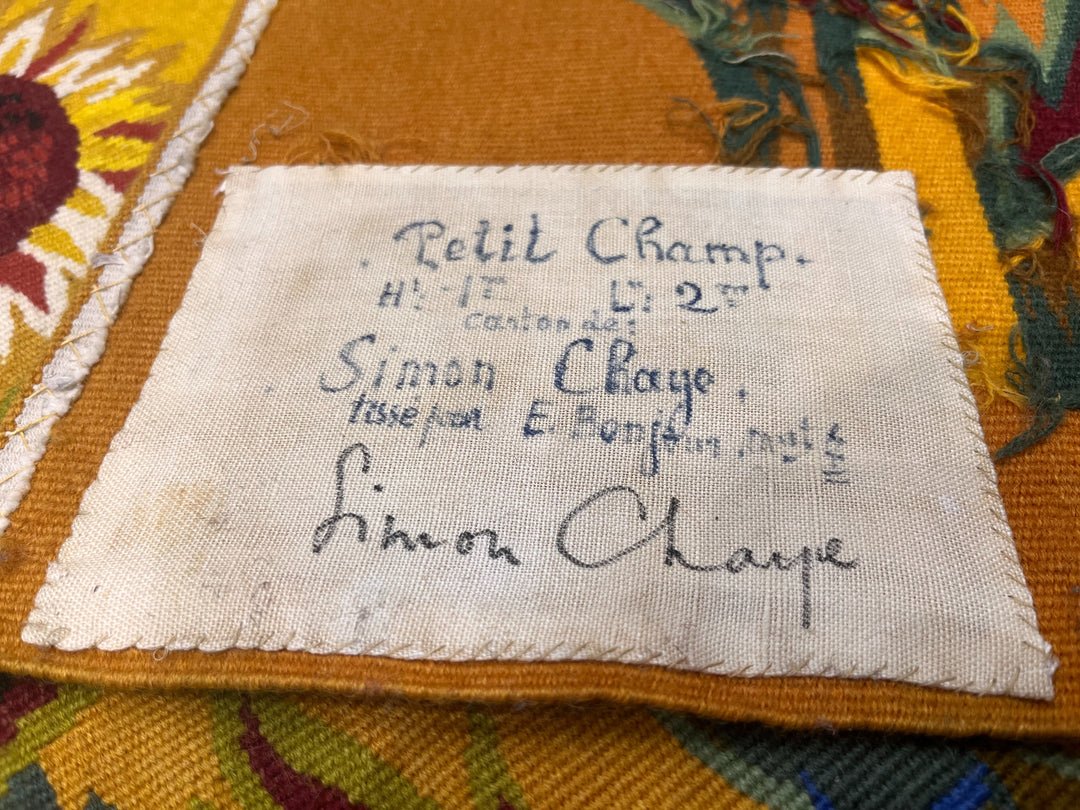 Petit Champ.
Hr: 1m Lr: 2m
carton de:
Simon Chaye.
tissé par E.
Simon Chaye